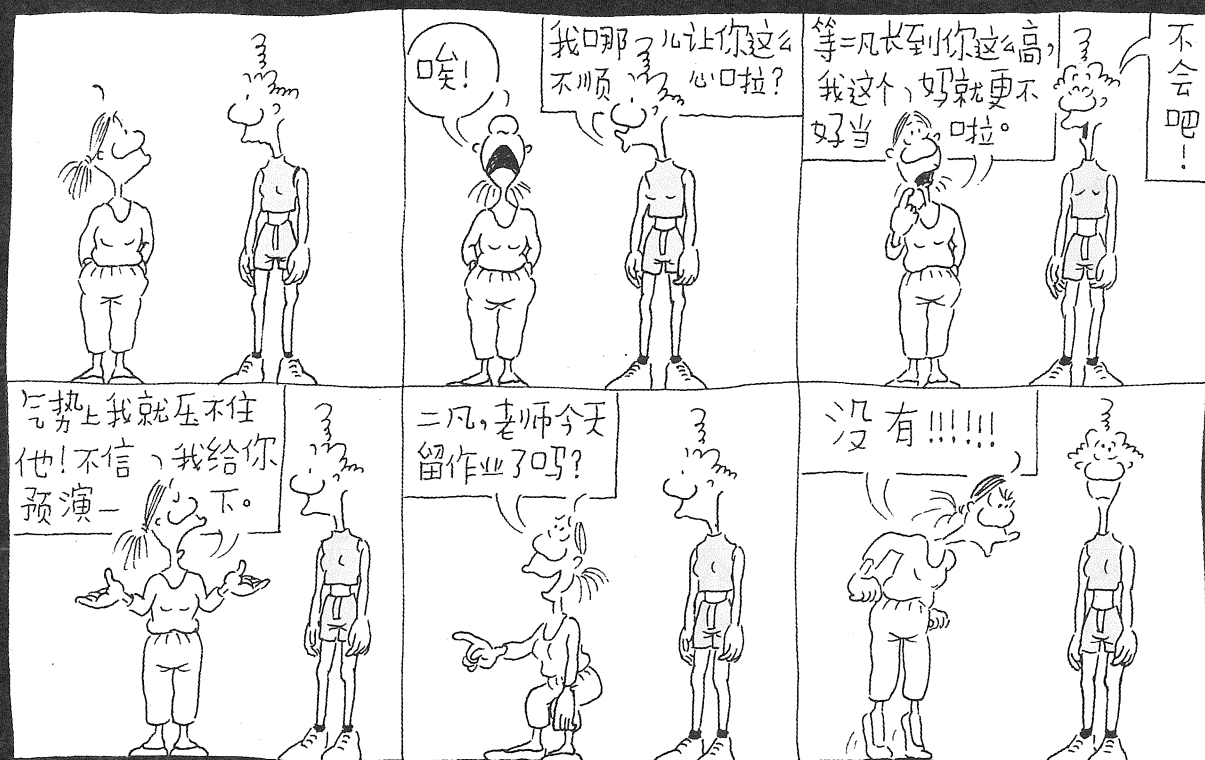 唉！
我哪儿让你这么
不顺心啦？
等二凡长到你这么高，
我这个、妈就更不
好当啦。
不
会
吧
！
气势上我就压不住
他！不信、我给你
预演一下。
二凡，老师今天
留作业了吗？
没有!!!!!!